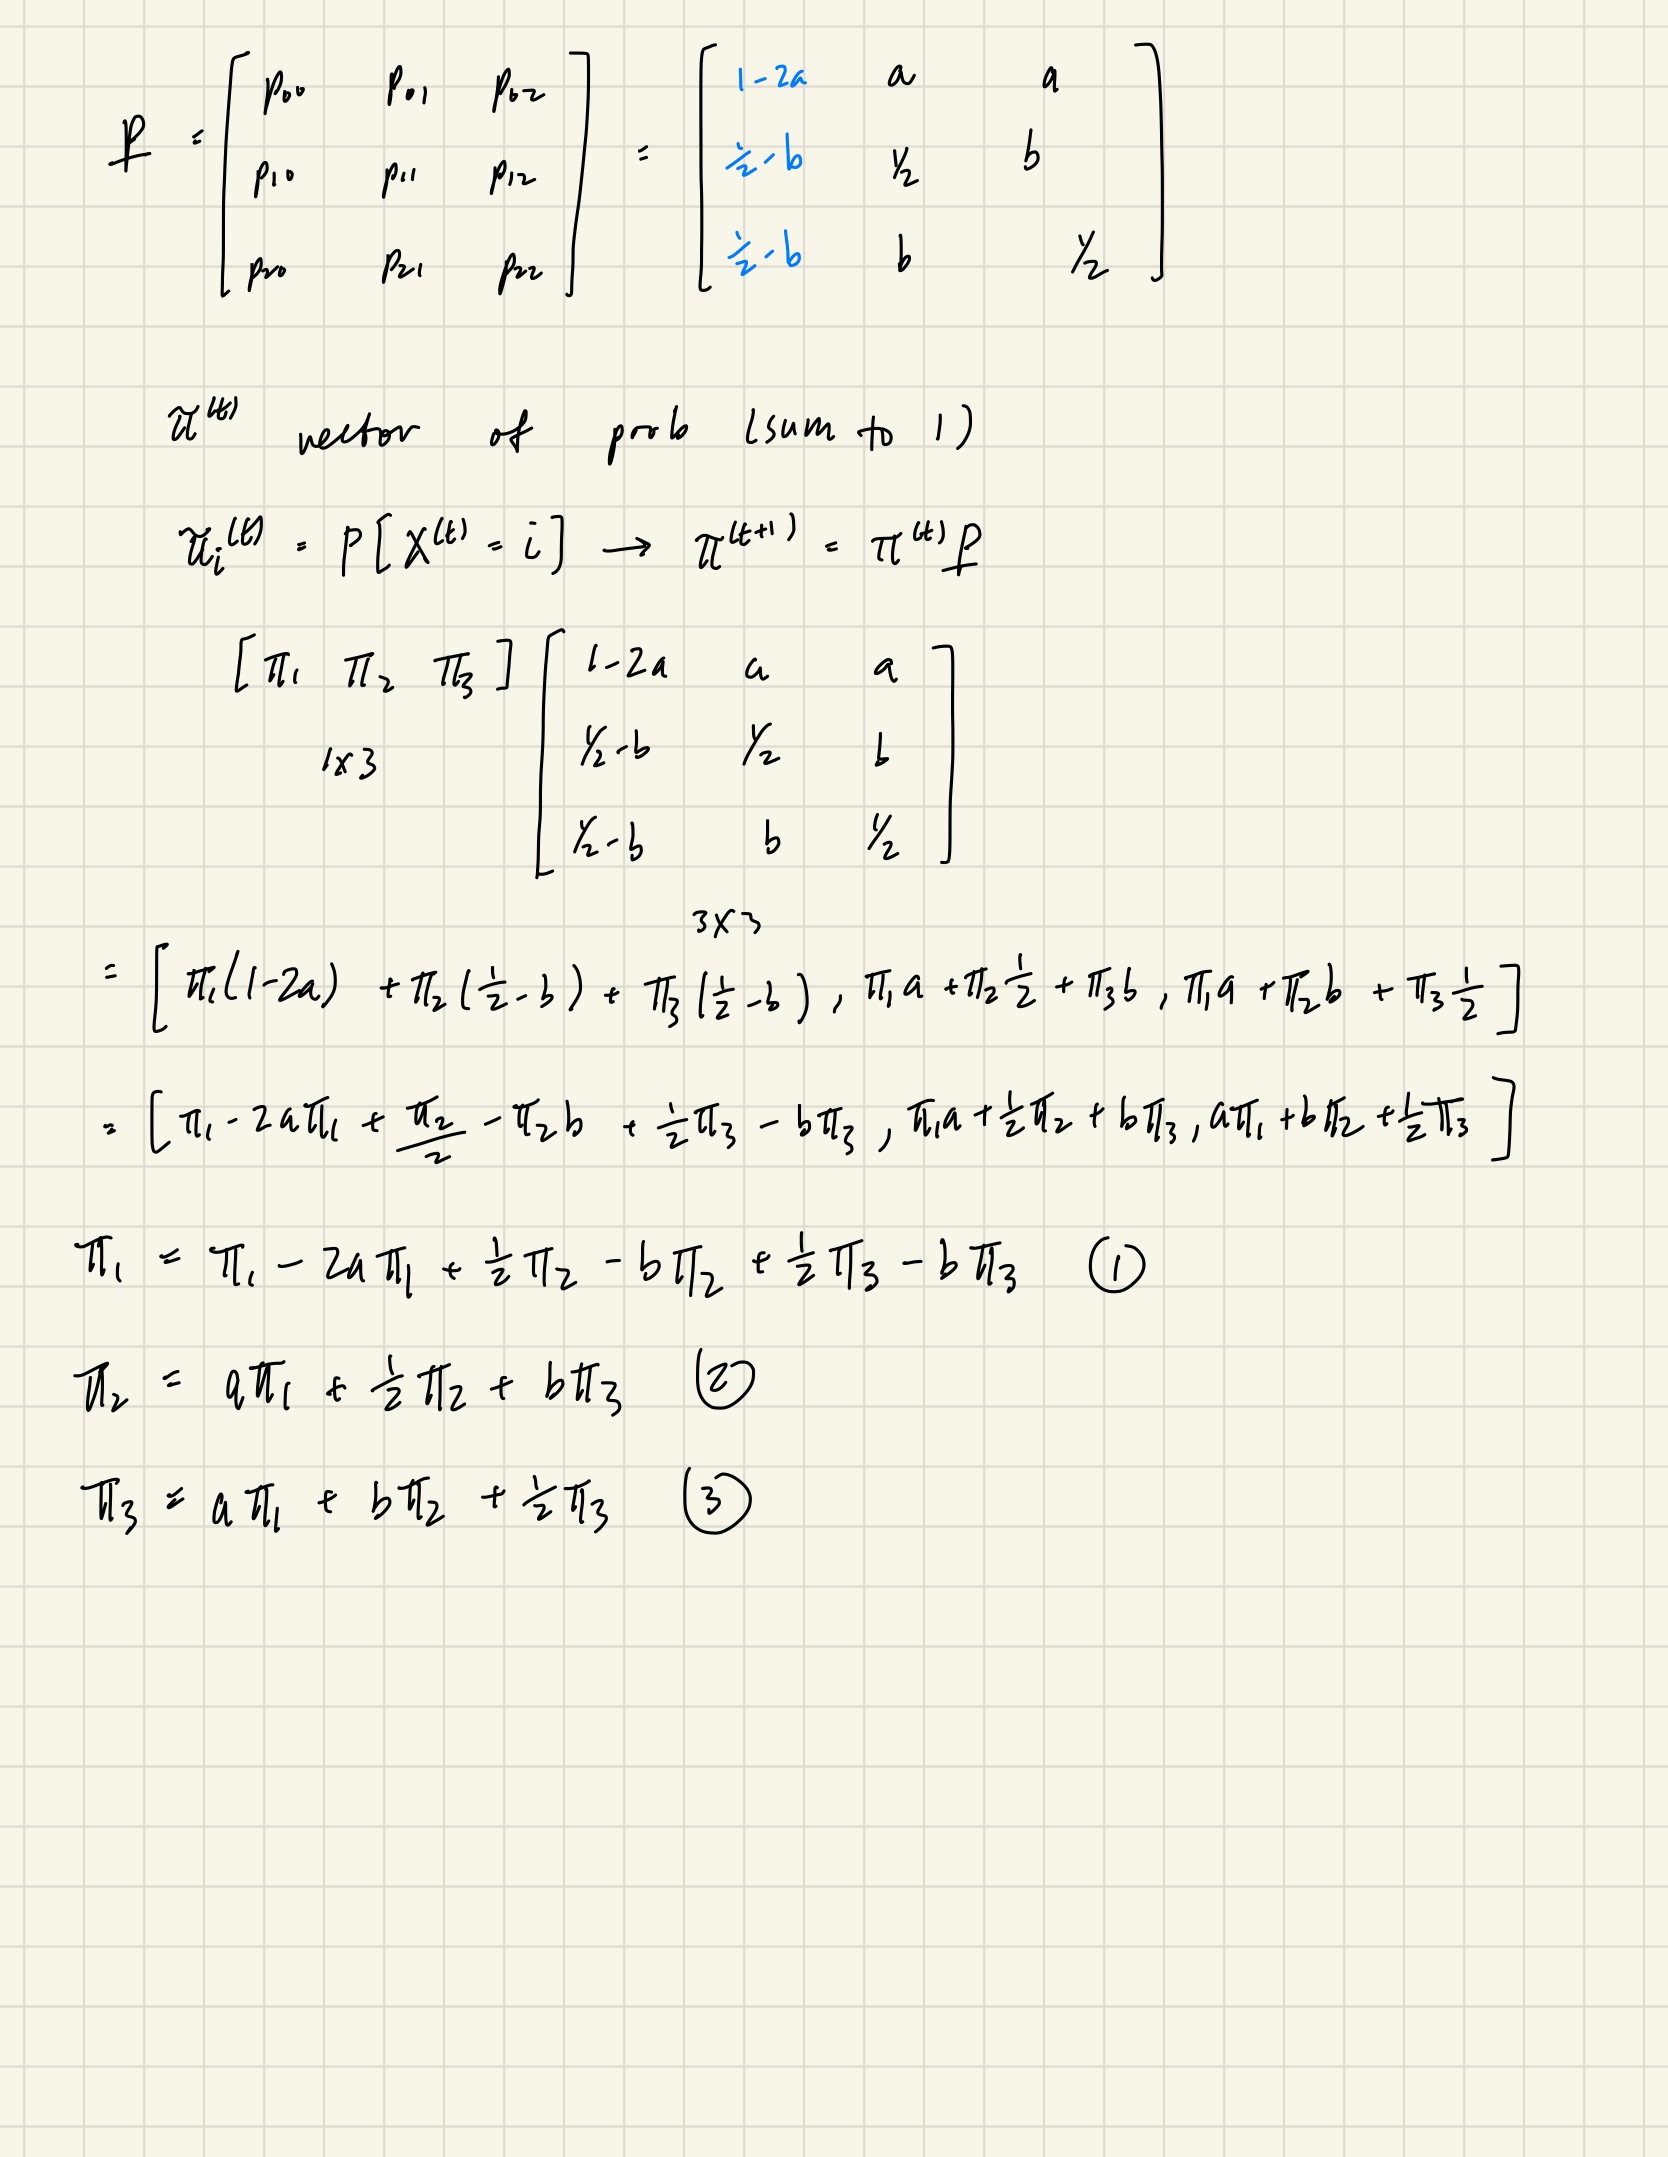 P = [ p00 p01 p02 ] = [ 1-2a a a ]
[ p10 p11 p12 ] [ 1/2 - b 1/2 b ]
[ p20 p21 p22 ] [ 1/2 - b b 1/2 ]
π^(t) vector of prob (sum to 1)
π_i^(t) = P[X^(t) = i] → π^(t+1) = π^(t) P
[π1 π2 π3] [ 1-2a a a ]
1x3 [ 1/2-b 1/2 b ]
[ 1/2-b b 1/2 ]
3x3
= [ π1(1-2a) + π2(1/2 - b) + π3(1/2 - b), π1a + π2 1/2 + π3b, π1a + π2b + π3 1/2 ]
= [ π1 - 2aπ1 + π2/2 - π2b + 1/2π3 - bπ3, π1a + 1/2π2 + bπ3, aπ1 + bπ2 + 1/2π3 ]
π1 = π1 - 2aπ1 + 1/2π2 - bπ2 + 1/2π3 - bπ3 ①
π2 = aπ1 + 1/2π2 + bπ3 ②
π3 = aπ1 + bπ2 + 1/2π3 ③